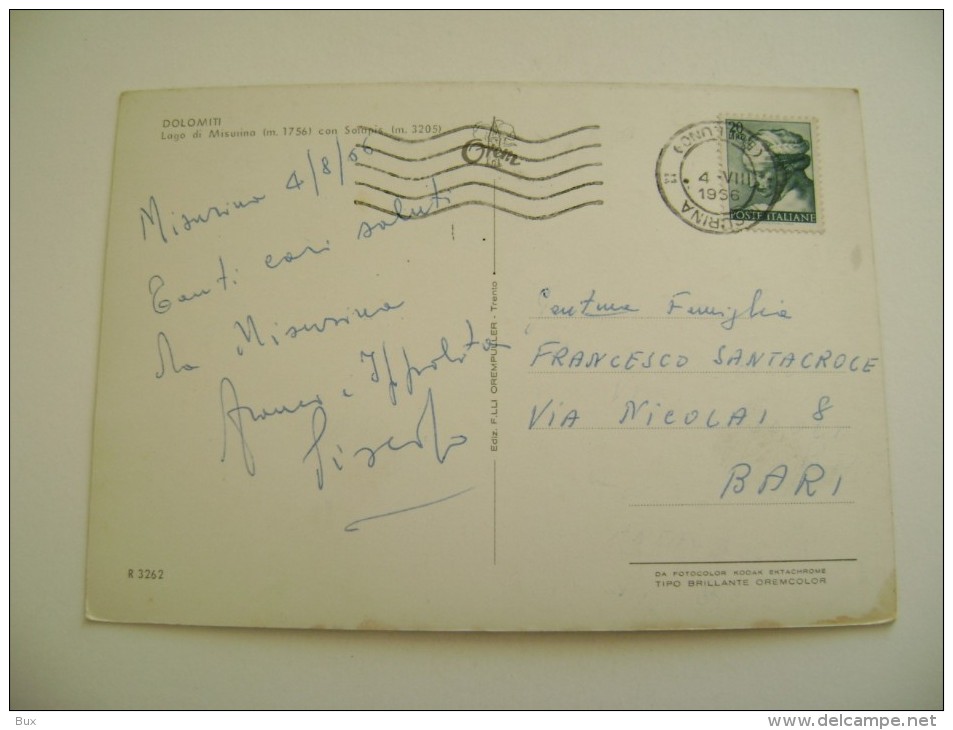 DOLOMITI
Lago di Misurina (m. 1756) con Sorapis (m. 3205)
Orem
Misurina 4/8/66
Tanti cari saluti
da Misurina
Franco e Ippolita
20
POSTE ITALIANE
MISURINA
(BELLUNO)
4 VIII
1966
Gentma Famiglia
FRANCESCO SANTACROCE
VIA NICOLAI 8
BARI
Ediz. F.LLI OREMPULLER - Trento
R 3262
DA FOTOCOLOR KODAK EKTACHROME
TIPO BRILLANTE OREMCOLOR
Bux
www.delcampe.net